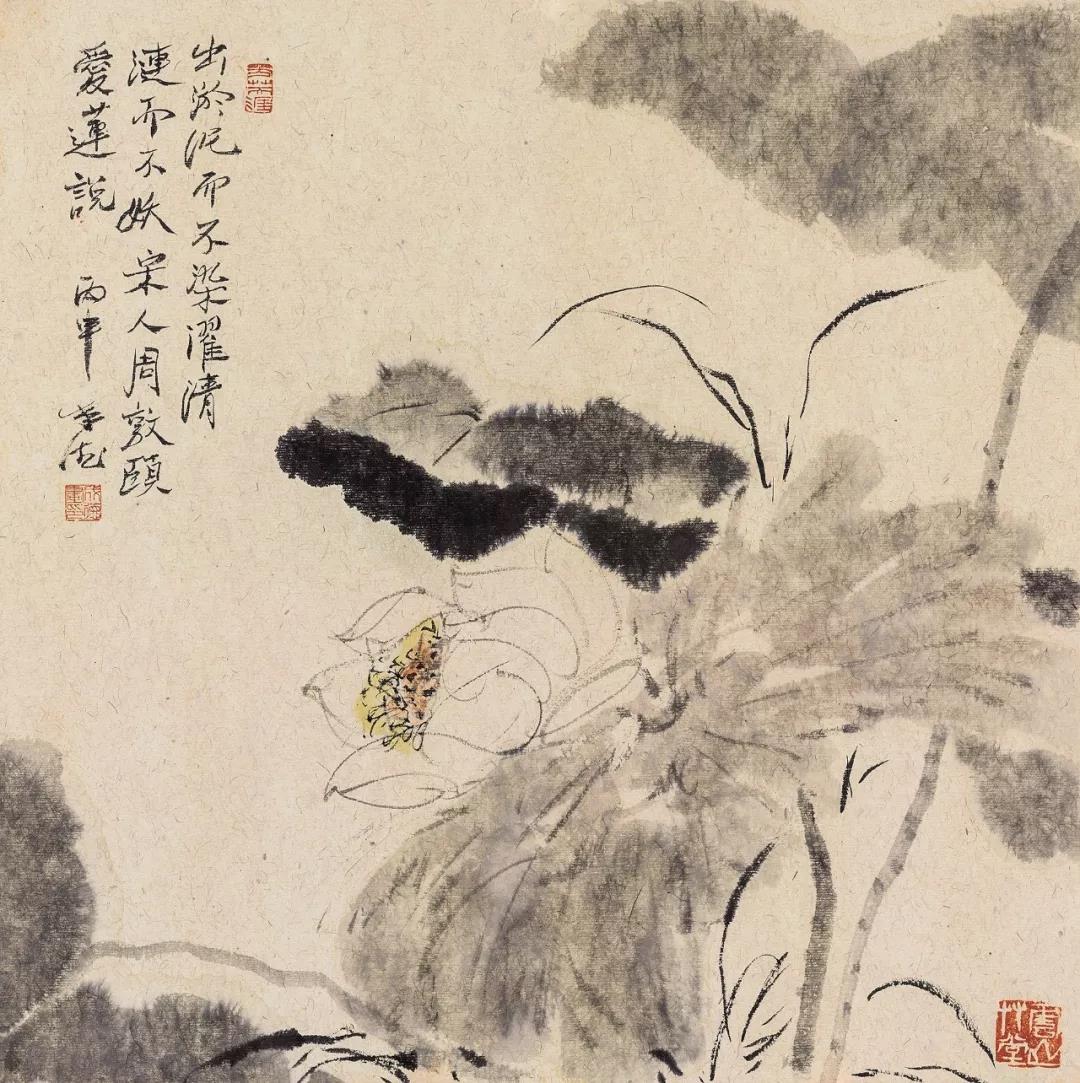 出淤泥而不染濯清
漣而不妖宋人周敦頤
愛蓮說 丙申